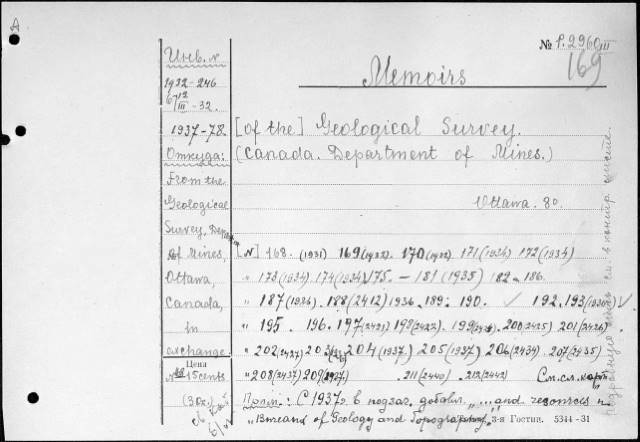 № P.2960 III
169
Инв. №
Memoirs
1932-246
12
III -32.
1937-78.
[of the] Geological Survey.
Откуда:
(Canada. Department of Mines.)
From the
Geological
Ottawa. 8o.
Survey, Depart
of Mines,
[№] 168. (1931) 169 (1932). 170 (1932) 171 (1934) 172 (1934)
Ottawa,
" 173 (1934) 174 (1934) 175. - 181 (1935) 182 - 186.
Canada,
" 187 (1934). 188 (2412) 1936. 189. 190. 192. 193
in
" 195. 196. 197 (2421) 198 (2422). 199 200 (2425) 201 (2426).
exchange.
" 202 (2427) 203 204 (1937) 205 (1937) 206 (2434) 207 (2435)
Цена
15 cents
" 208 (2437) 209 211 (2440). 212 (2442) См. сл. карт.
Прим.: С 1937 г. в подзаг. добавл. "... and resources и
" Bureau of Geology and Topography".
3-я Гостип. 5344-31
подробную опись см. в контр. листе.